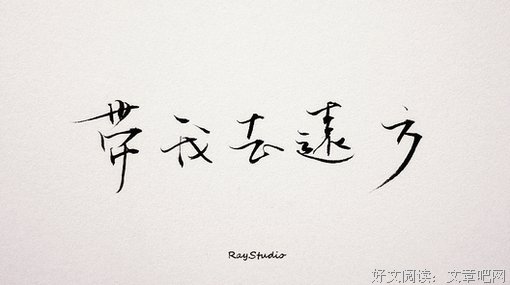 帶我去遠方
RayStudio
好文阅读：文章吧网